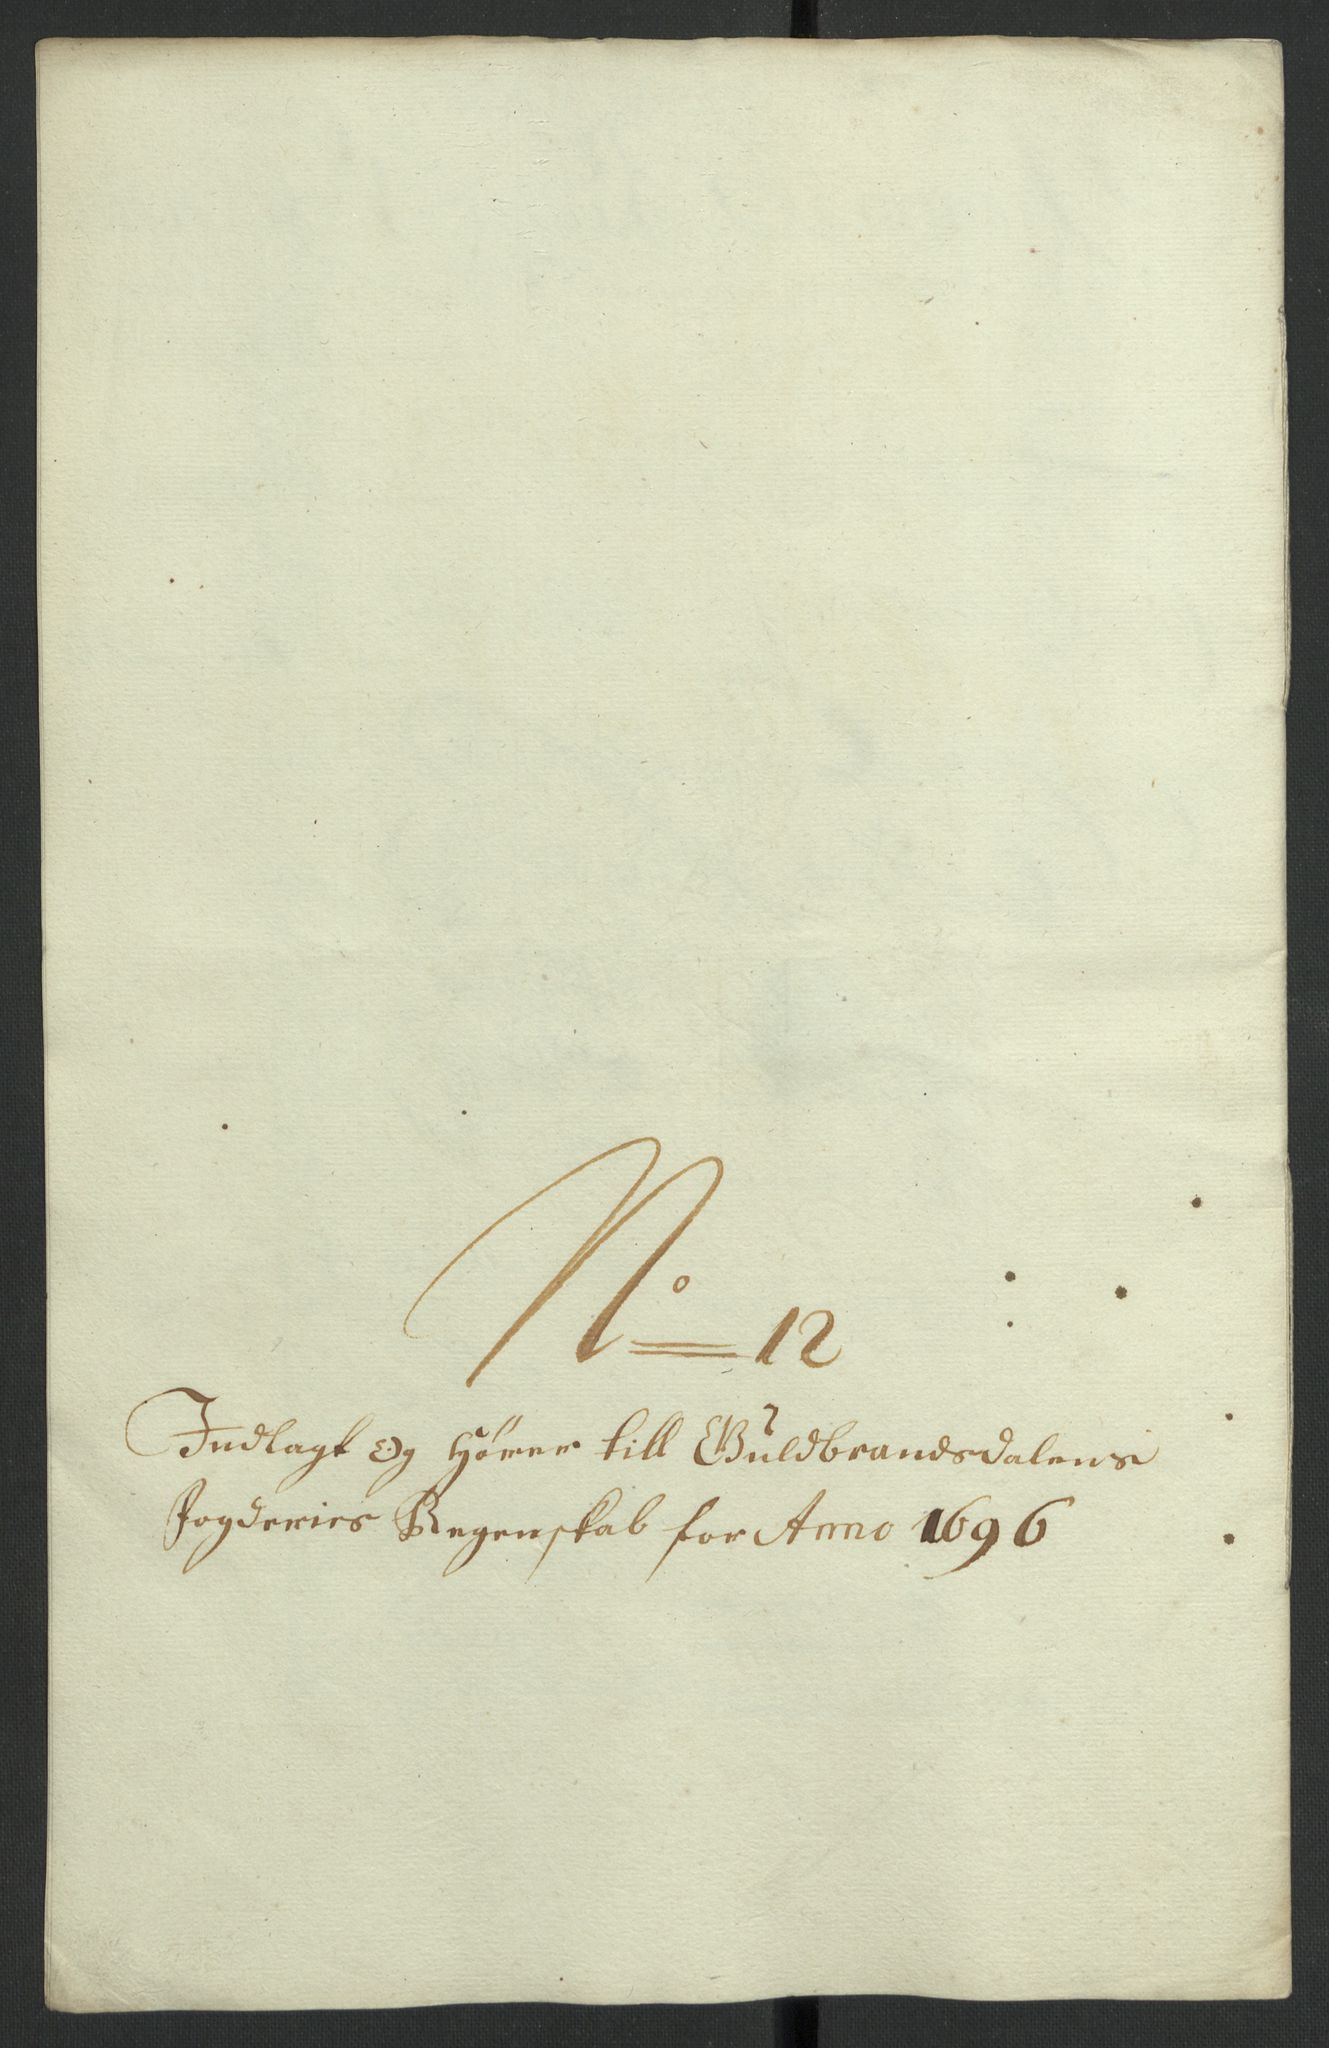 No 12
Indlagt Og Hörer till Guldbrandsdalens
fogderies Regenskab for Anno 1696